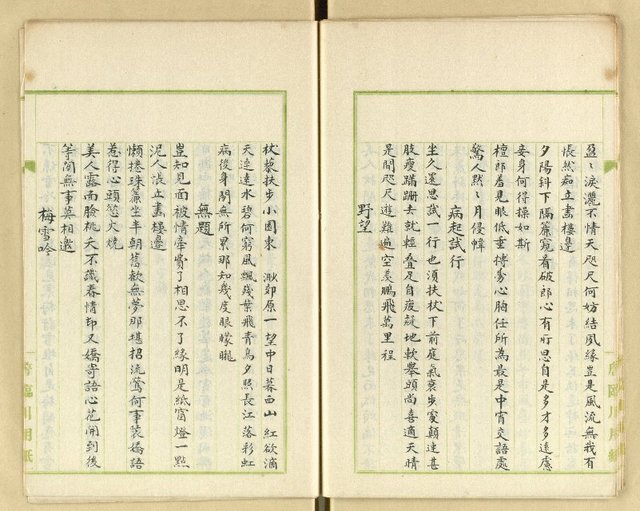 盈〻淚灑不情天咫尺何妨結風緣豈是風流無我有
悵然痴立畫樓邊
夕陽斜下隔簾窺看破郎心有所思自是多才多遠慮
妾身何得操如斯
檀郎羞見眼低垂搏雾心胸任所為最是中宵交語處
驚人煞〻月侵幃
病起試行
坐久還思試一行也須扶杖下前庭氣衰步寬顛連甚
股瘦蹣跚去就輕叠足自疲疑地軟舉頭尚喜適天晴
是間咫尺遊難遍空羨鵬飛萬里程
野望
杖藜扶步小園東 渺郊原一望中日暮西山 紅欲滴
天連遠水碧何窮風飄殘葉飛青鳥夕照長江落彩虹
病後身閒無所累那知幾度眼矇矓
無題
豈知見面被情牽賞了相思不了緣明是紙窗燈一點
泥人悵立畫樓邊
懶捲珠簾坐半朝舊歡無夢那堪招流鶯何事裝嬌語
惹得心頭慾火燒
美人露面臉桃夭不識春情却又嬌寄語心花開到後
等閒無事莫相邀
梅雪吟
臨川用紙